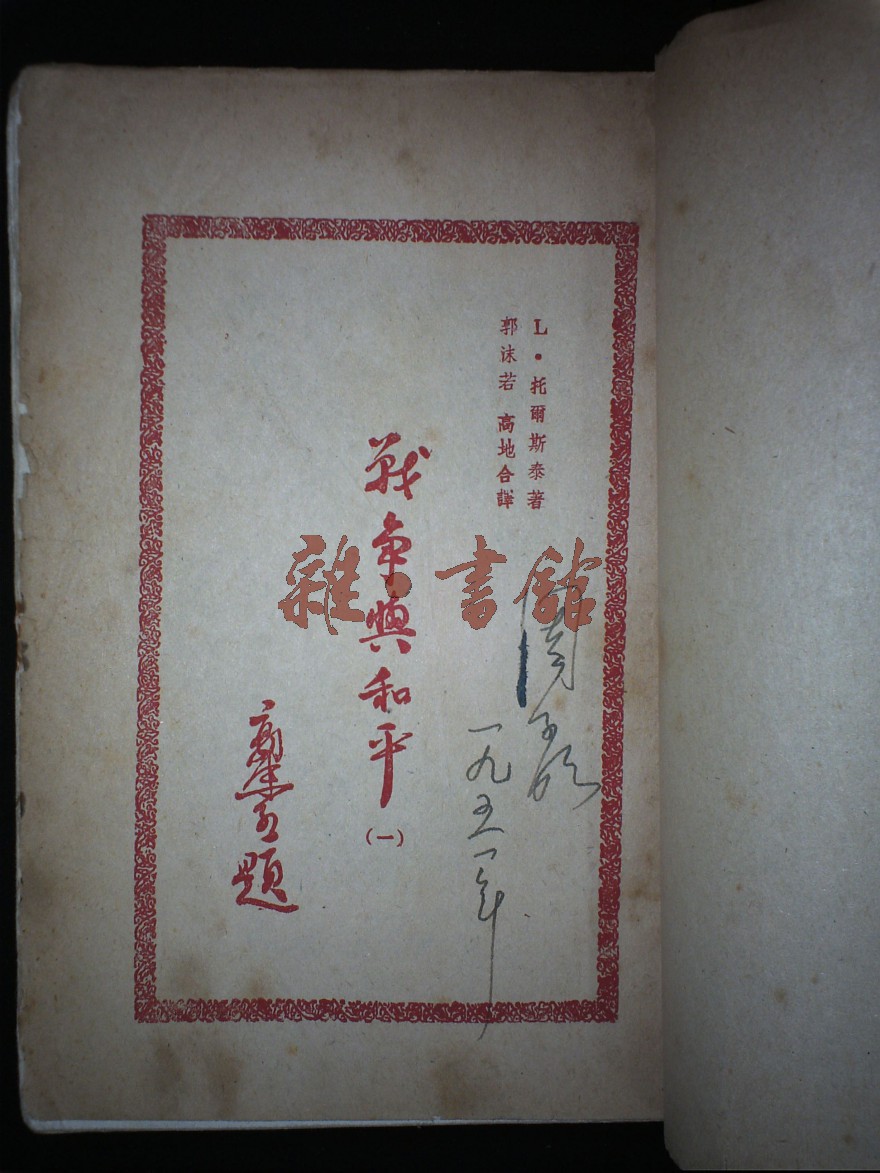 L・托爾斯泰著
郭沫若 高地合譯
戰爭與和平
(一)
郭沫若題
一九五一年
雜·書館